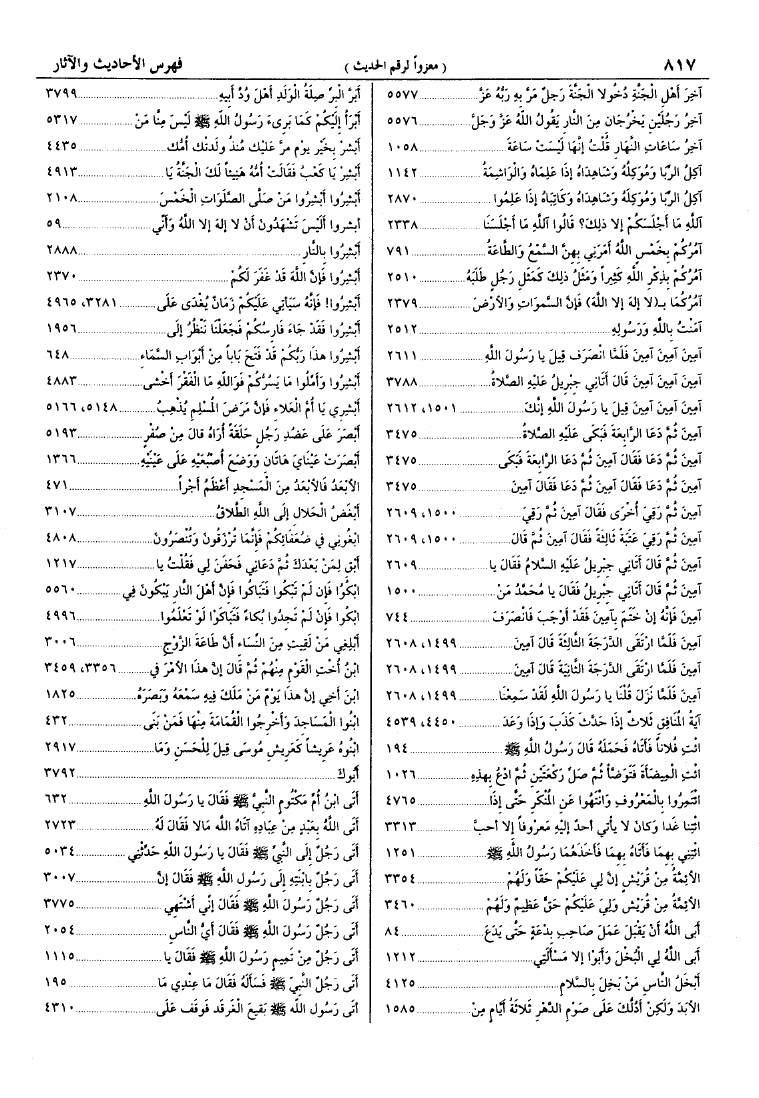 ٨١٧
( معزواً لرقم الحديث )
فهرس الأحاديث والآثار
آخِرَ أَهْلِ الْجَنَّةِ دُخُولاً الْجَنَّةَ رَجلٌ مَرَّ بِهِ رَبُّهُ عَزَّ ..... ٥٥٧٧
آخِرُ رَجُلَيْنِ يَخْرُجَانِ مِنَ النَّارِ يَقُولُ اللَّهُ عَزَّ وَجَلَّ ..... ٥٥٧٦
آخرُ سَاعَاتِ النَّهَارِ قُلْتُ إِنَّهَا لَيْسَتْ سَاعَةَ ..... ١٠٥٨
آكِلُ الرِّبَا وَمُوَكِلُهُ وَشَاهِدَاهُ إِذَا عَلِمَاهُ وَالْوَاشِمَةُ ..... ١١٤٢
آكِلُ الرِّبَا وَمُوكِلُهُ وَشَاهِدَاهُ وَكَاتِبَاهُ إِذَا عَلِمُوا ..... ٢٨٧٠
آللَّهِ مَا أَجْلَسَكُمْ إِلا ذلِكَ؟ قَالُوا آللَّهِ مَا أَجْلَسَنَا ..... ٢٣٣٨
آمُرُكُمْ بِخَمْسٍ اللَّهُ أَمَرَنِي بِهِنَّ السَّمْعُ وَالطَّاعَةُ ..... ٧٩١
آمُرُكُمْ بِذِكْرِ اللَّهِ كَثِيراً وَمَثَلُ ذلِكَ كَمَثَلِ رَجُلٍ طَلَبَهُ ..... ٢٥١٠
آمُرُكُمَا بـ(لا إِلهَ إِلا اللَّهُ) فَإِنَّ السَّمَوَاتِ وَالأَرْضَ ..... ٢٣٧٩
آمَنْتُ بِاللَّهِ وَرَسُولِهِ ..... ٢٥١٢
آمِينَ آمِينَ آمِينَ فَلَمَّا انْصَرَفَ قِيلَ يا رَسُولَ اللَّهِ ..... ٢٦١١
آمِينَ آمِينَ آمِينَ قَالَ أَتَانِي جِبْرِيلُ عَلَيْهِ الصَّلاةُ ..... ٣٧٨٨
آمِينَ آمِينَ آمِينَ قِيلَ يا رَسُولَ اللَّهِ إِنَّكَ ..... ١٥٠١، ٢٦١٢
آمِينَ ثُمَّ دَعَا الرَّابِعَةَ فَبَكَى عَلَيْهِ الصَّلاةُ ..... ٣٤٧٥
آمِينَ ثُمَّ دَعَا فَقَالَ آمِينَ ثُمَّ دَعَا الرَّابِعَةَ فَبَكَى ..... ٣٤٧٥
آمِينَ ثُمَّ دَعَا فَقَالَ آمِينَ ثُمَّ دَعَا فَقَالَ آمِينَ ..... ٣٤٧٥
آمِينَ ثُمَّ رَقِيَ أُخْرَى فَقَالَ آمِينَ ثُمَّ رَقِيَ ..... ١٥٠٠، ٢٦٠٩
آمِينَ ثُمَّ رَقِيَ عَتَبَةً ثَالِثَةً فَقَالَ آمِينَ ثُمَّ قَالَ ..... ١٥٠٠، ٢٦٠٩
آمِينَ ثُمَّ قَالَ أَتَانِي جِبْرِيلُ عَلَيْهِ السَّلامُ فَقَالَ يا ..... ٢٦٠٩
آمِينَ ثُمَّ قَالَ أَتَانِي جِبْرِيلُ فَقَالَ يا مُحَمَّدُ مَنْ ..... ١٥٠٠
آمِينَ فَإِنَّهُ إِنْ خَتَمَ بِآمِينَ فَقَدْ أَوْجَبَ فَانْصَرَفَ ..... ٧٤٤
آمِينَ فَلَمَّا ارْتَقَى الدَّرَجَةَ الثَّالِثَةَ قَالَ آمِينَ ..... ١٤٩٩، ٢٦٠٨
آمِينَ فَلَمَّا ارْتَقَى الدَّرَجَةَ الثَّانِيَةَ قَالَ آمِينَ ..... ١٤٩٩، ٢٦٠٨
آمِينَ فَلَمَّا نَزَلَ قُلْنَا يا رَسُولَ اللَّهِ لَقَدْ سَمِعْنَا ..... ١٤٩٩، ٢٦٠٨
آيَةُ الْمُنَافِقِ ثَلاثٌ إِذَا حَدَّثَ كَذَبَ وَإِذَا وَعَدَ ..... ٤٤٥٠، ٤٥٣٩
ائْتِ فُلاناً فَأَتَاهُ فَحَمَلَهُ قَالَ رَسُولُ اللَّهِ ﷺ ..... ١٩٤
ائْتِ الْمِيضَأَةَ فَتَوَضَّأْ ثُمَّ صَلِّ رَكْعَتَيْنِ ثُمَّ ادْعُ بِهذِهِ ..... ١٠٢٦
ائْتَمِرُوا بِالْمَعْرُوفِ وَانْتَهُوا عَنِ الْمُنْكَرِ حَتَّى إِذَا ..... ٤٧٦٥
ائْتِنَا غَدا وَكَانَ لا يَأْتي أَحدٌ إِلَيْهِ مَعْرُوفاً إِلا أَحبَّ ..... ٣٣١٣
ائْتِنِي بِهِمَا فَأَتَاهُ بِهِمَا فَأَخَذَهُمَا رَسُولُ اللَّهِ ﷺ ..... ١٢٥١
الأَئِمَّةُ مِنْ قُرَيْشٍ إِنَّ لِي عَلَيْكُمْ حَقّاً وَلَهُمْ ..... ٣٣٥٤
الأَئِمَّةُ مِنْ قُرَيْشٍ وَلِيَ عَلَيْكُمْ حَقٌّ عَظِيمٌ وَلَهُمْ ..... ٣٤٦٠
أَبَى اللَّهُ أَنْ يَقْبَلَ عَمَلَ صَاحِبِ بِدْعَةٍ حَتَّى يَدَعَ ..... ٨٤
أَبَى اللَّهُ لِي الْبُخْلَ وَأَبَوْا إِلا مَسْأَلَتِي ..... ١٢١٢
أَبْخَلُ النَّاسِ مَنْ بَخِلَ بِالسَّلامِ ..... ٤١٢٥
الأَبَدَ وَلكِنْ أَدُلُّكَ عَلَى صَوْمِ الدَّهْرِ ثَلاثَةُ أَيَّامٍ مِنْ ..... ١٥٨٥
أَبَرُّ الْبِرِّ صِلَةُ الْوَلَدِ أَهْلَ وُدِّ أَبِيهِ ..... ٣٧٩٩
أَبْرَأُ إِلَيْكُمْ كَمَا بَرِىءَ رَسُولُ اللَّهِ ﷺ لَيْسَ مِنَّا مَنْ ..... ٥٣١٧
أَبْشِرْ بِخَيْرِ يومٍ مرَّ عَلَيْكَ مُنذُ ولدتكَ أُمُّك ..... ٤٤٣٥
أَبْشِرْ يَا كَعْبُ فَقَالَتْ أُمُّهُ هَنِيئاً لَكَ الْجَنَّةُ يَا ..... ٤٩١٣
أَبْشِرُوا أَبْشِرُوا مَنْ صَلَّى الصَّلَوَاتِ الْخَمْسَ ..... ٢١٠٨
أبشروا أَلَيْسَ تَشْهَدُونَ أَنْ لا إِلهَ إِلا اللَّهُ وَأَنِّي ..... ٥٩
أَبْشِرُوا بِالنَّارِ ..... ٢٨٨٨
أَبْشِرُوا فَإِنَّ اللَّهَ قَدْ غَفَرَ لَكُمْ ..... ٢٣٧٠
أَبْشِرُوا! فَإِنَّهُ سَيَأْتِي عَلَيْكُمْ زَمَانٌ يُغْدَى عَلَى ..... ٣٢٨١، ٤٩٦٥
أَبْشِرُوا فَقَدْ جَاءَ فَارِسُكُمْ فَجَعَلْنَا نَنْظُرُ إِلَى ..... ١٩٥٦
أَبْشِرُوا هذَا رَبُّكُمْ قَدْ فَتَحَ بَاباً مِنْ أَبْوَابِ السَّمَاءِ ..... ٦٤٨
أَبْشِرُوا وَأَمِّلُوا مَا يَسُرُّكُمْ فَوَاللَّهِ مَا الْفَقْرَ أَخْشى ..... ٤٨٨٣
أَبْشِري يَا أُمَّ الْعَلاءِ فَإِنَّ مَرَضَ الْمُسْلِمِ يُذْهِبُ ..... ٥١٤٨، ٥١٦٦
أَبْصَرَ عَلَى عَضُدِ رَجُلٍ حَلَقَةً أُرَاهُ قالَ مِنْ صُفْرٍ ..... ٥١٩٣
أَبْصَرَتْ عَيْنَايَ هَاتَانِ وَوَضَعَ أَصْبُعَيْهِ عَلَى عَيْنَيْهِ ..... ١٣٦٦
الأَبْعَدُ فَالأَبْعَدُ مِنَ الْمَسْجِدِ أَعْظَمُ أَجْراً ..... ٤٧١
أَبْغَضُ الْحَلالِ إِلَى اللَّهِ الطَّلاقُ ..... ٣١٠٧
ابْغُونِي في ضُعَفَائِكُمْ فَإِنَّمَا تُرْزَقُونَ وَتُنْصَرُونَ ..... ٤٨٠٨
أَبْقِ لِمَنْ بَعْدَكَ ثُمَّ دَعَانِي فَحَفَنَ لِي فَقُلْتُ يا ..... ١٢١٧
ابْكُوا فَإِن لَمْ تَبْكُوا فَتَبَاكوا فَإِنَّ أَهْلَ النَّارِ يَبْكُونَ فِي ..... ٥٥٦٠
ابْكُوا فَإِنْ لَمْ تَجِدُوا بُكَاءً فَتَبَاكَوْا لَوْ تَعْلَمُوا ..... ٤٩٩٦
أَبْلِغِي مَنْ لَقِيتِ مِنَ النِّسَاءِ أَنَّ طَاعَةَ الزَّوْجِ ..... ٣٠٠٦
ابْنُ أُخْتِ الْقَوْمِ مِنْهُمْ ثُمَّ قَالَ إِنَّ هذَا الأَمْرَ في ..... ٣٣٥٦، ٣٤٥٩
ابْنَ أَخِي إِنَّ هذَا يَوْمٌ مَنْ مَلَكَ فِيهِ سَمْعَهُ وَبَصَرَهُ ..... ١٨٢٥
ابْنُوا الْمَسَاجِدَ وَأَخْرِجُوا الْقُمَامَةَ مِنْهَا فَمَنْ بَنَى ..... ٤٣٢
ابْنُوهُ عَرِيشاً كَعَرِيشِ مُوسَى قِيلَ لِلْحَسَنِ وَمَا ..... ٢٩١٧
أَبُوكَ ..... ٣٧٩٢
أَتَى ابْنُ أُمِّ مَكْتُومٍ النَّبِيَّ ﷺ فَقَالَ يا رَسُولَ اللَّهِ ..... ٦٣٢
أَتَى اللَّهُ بِعَبْدٍ مِنْ عِبَادِهِ آتَاهُ اللَّهُ مَالا فَقَالَ لَهُ ..... ٢٧٢٣
أَتَى رَجُلٌ إِلَى النَّبِيِّ ﷺ فَقَالَ يا رَسُولَ اللَّهِ حَدِّثْنِي ..... ٥٠٣٤
أَتَى رَجُلٌ بِابْنَتِهِ إِلَى رَسُولِ اللَّهِ ﷺ فَقَالَ إِنَّ ..... ٣٠٠٧
أَتَى رَجُلٌ رَسُولَ اللَّهِ ﷺ فَقَالَ إِنِّي أَشْتَهِي ..... ٣٧٧٥
أَتَى رَجُلٌ رَسُولَ اللَّهِ ﷺ فَقَالَ أَيُّ النَّاسِ ..... ٢٠٥٤
أَتَى رَجُلٌ مِنْ تَمِيمٍ رَسُولَ اللَّهِ ﷺ فَقَالَ يا ..... ١١١٥
أَتَى رَجُلٌ النَّبِيَّ ﷺ فَسَأَلَهُ فَقَالَ مَا عِنْدِي مَا ..... ١٩٥
أَتَى رَسُولُ اللَّهِ ﷺ بَقِيعَ الْغَرْقَدِ فَوَقَفَ عَلَى ..... ٤٣١٠